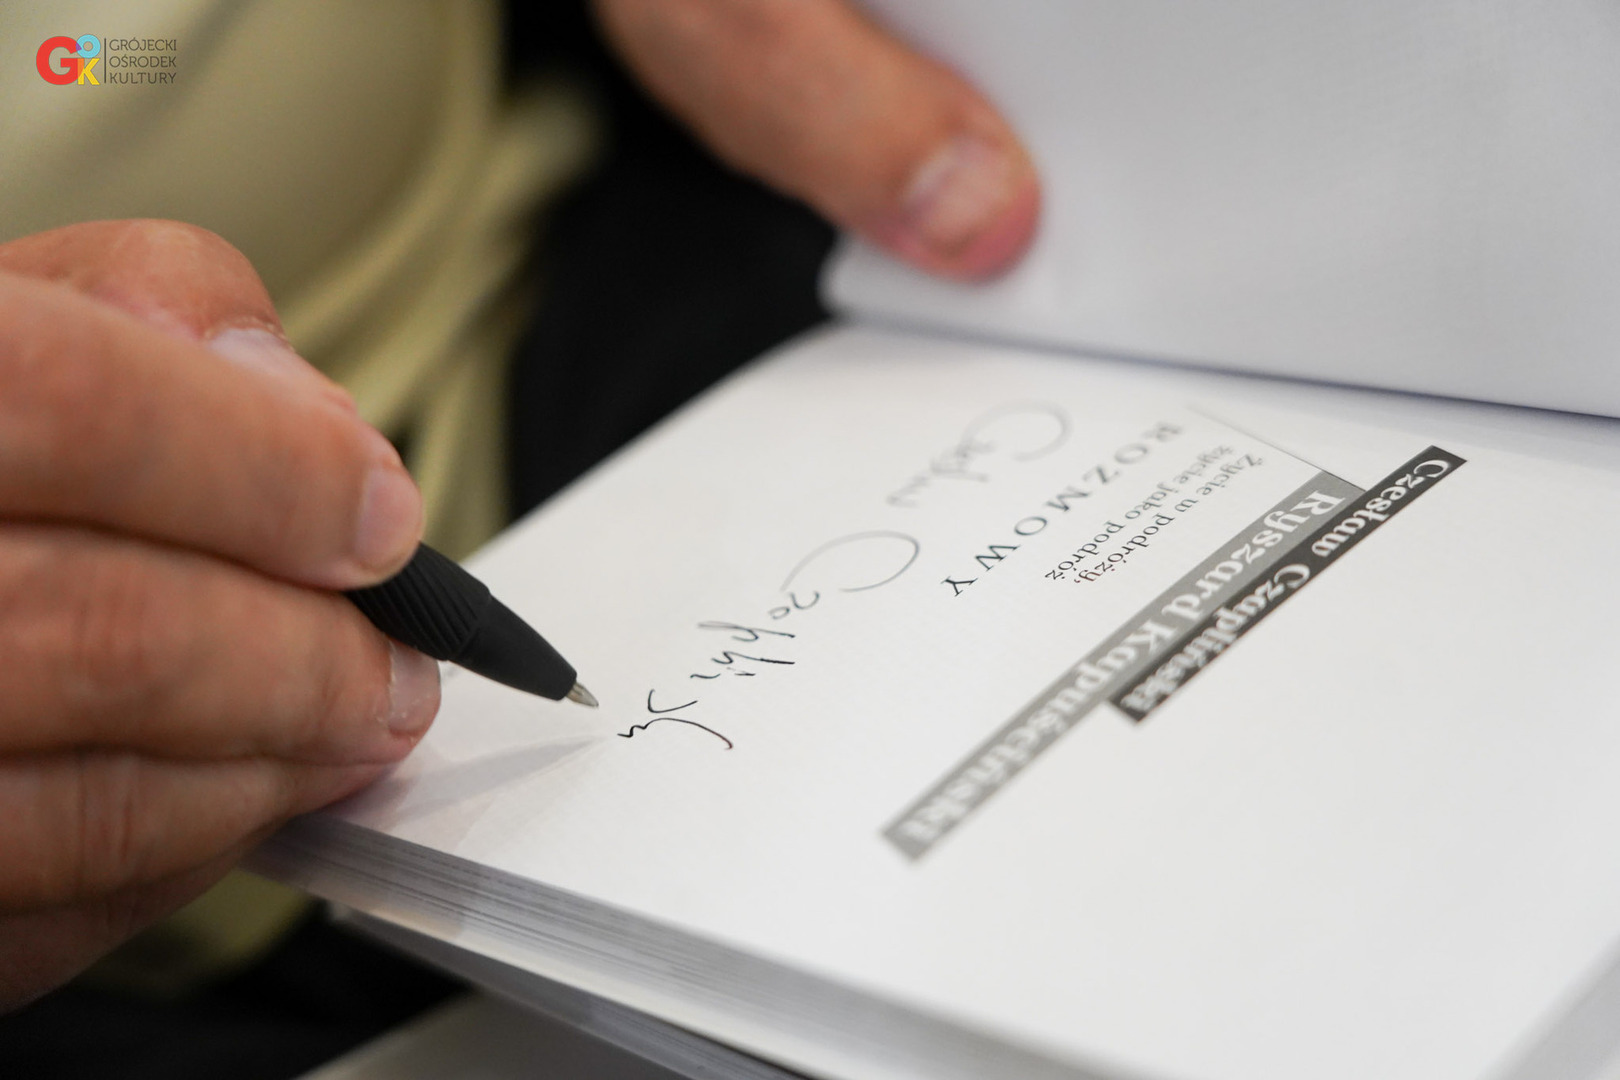 GOK
GRÓJECKI
OŚRODEK
KULTURY
Czesław Czapliński
Ryszard Kapuściński
Życie w podróży,
życie jako podróż
ROZMOWY
Czesław Czapliński